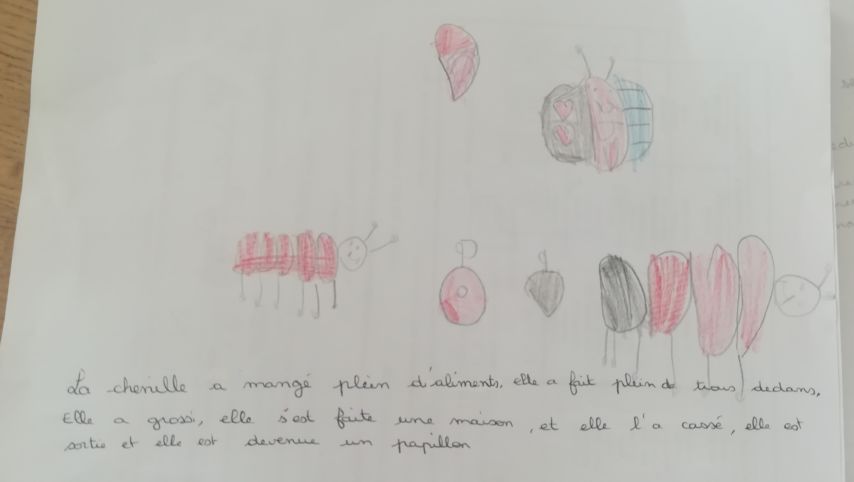 La chenille a mangé plein d'aliments, elle a fait plein de trous dedans,
Elle a grossi, elle s'est faite une maison, et elle l'a cassé, elle est
sortie et elle est devenue un papillon